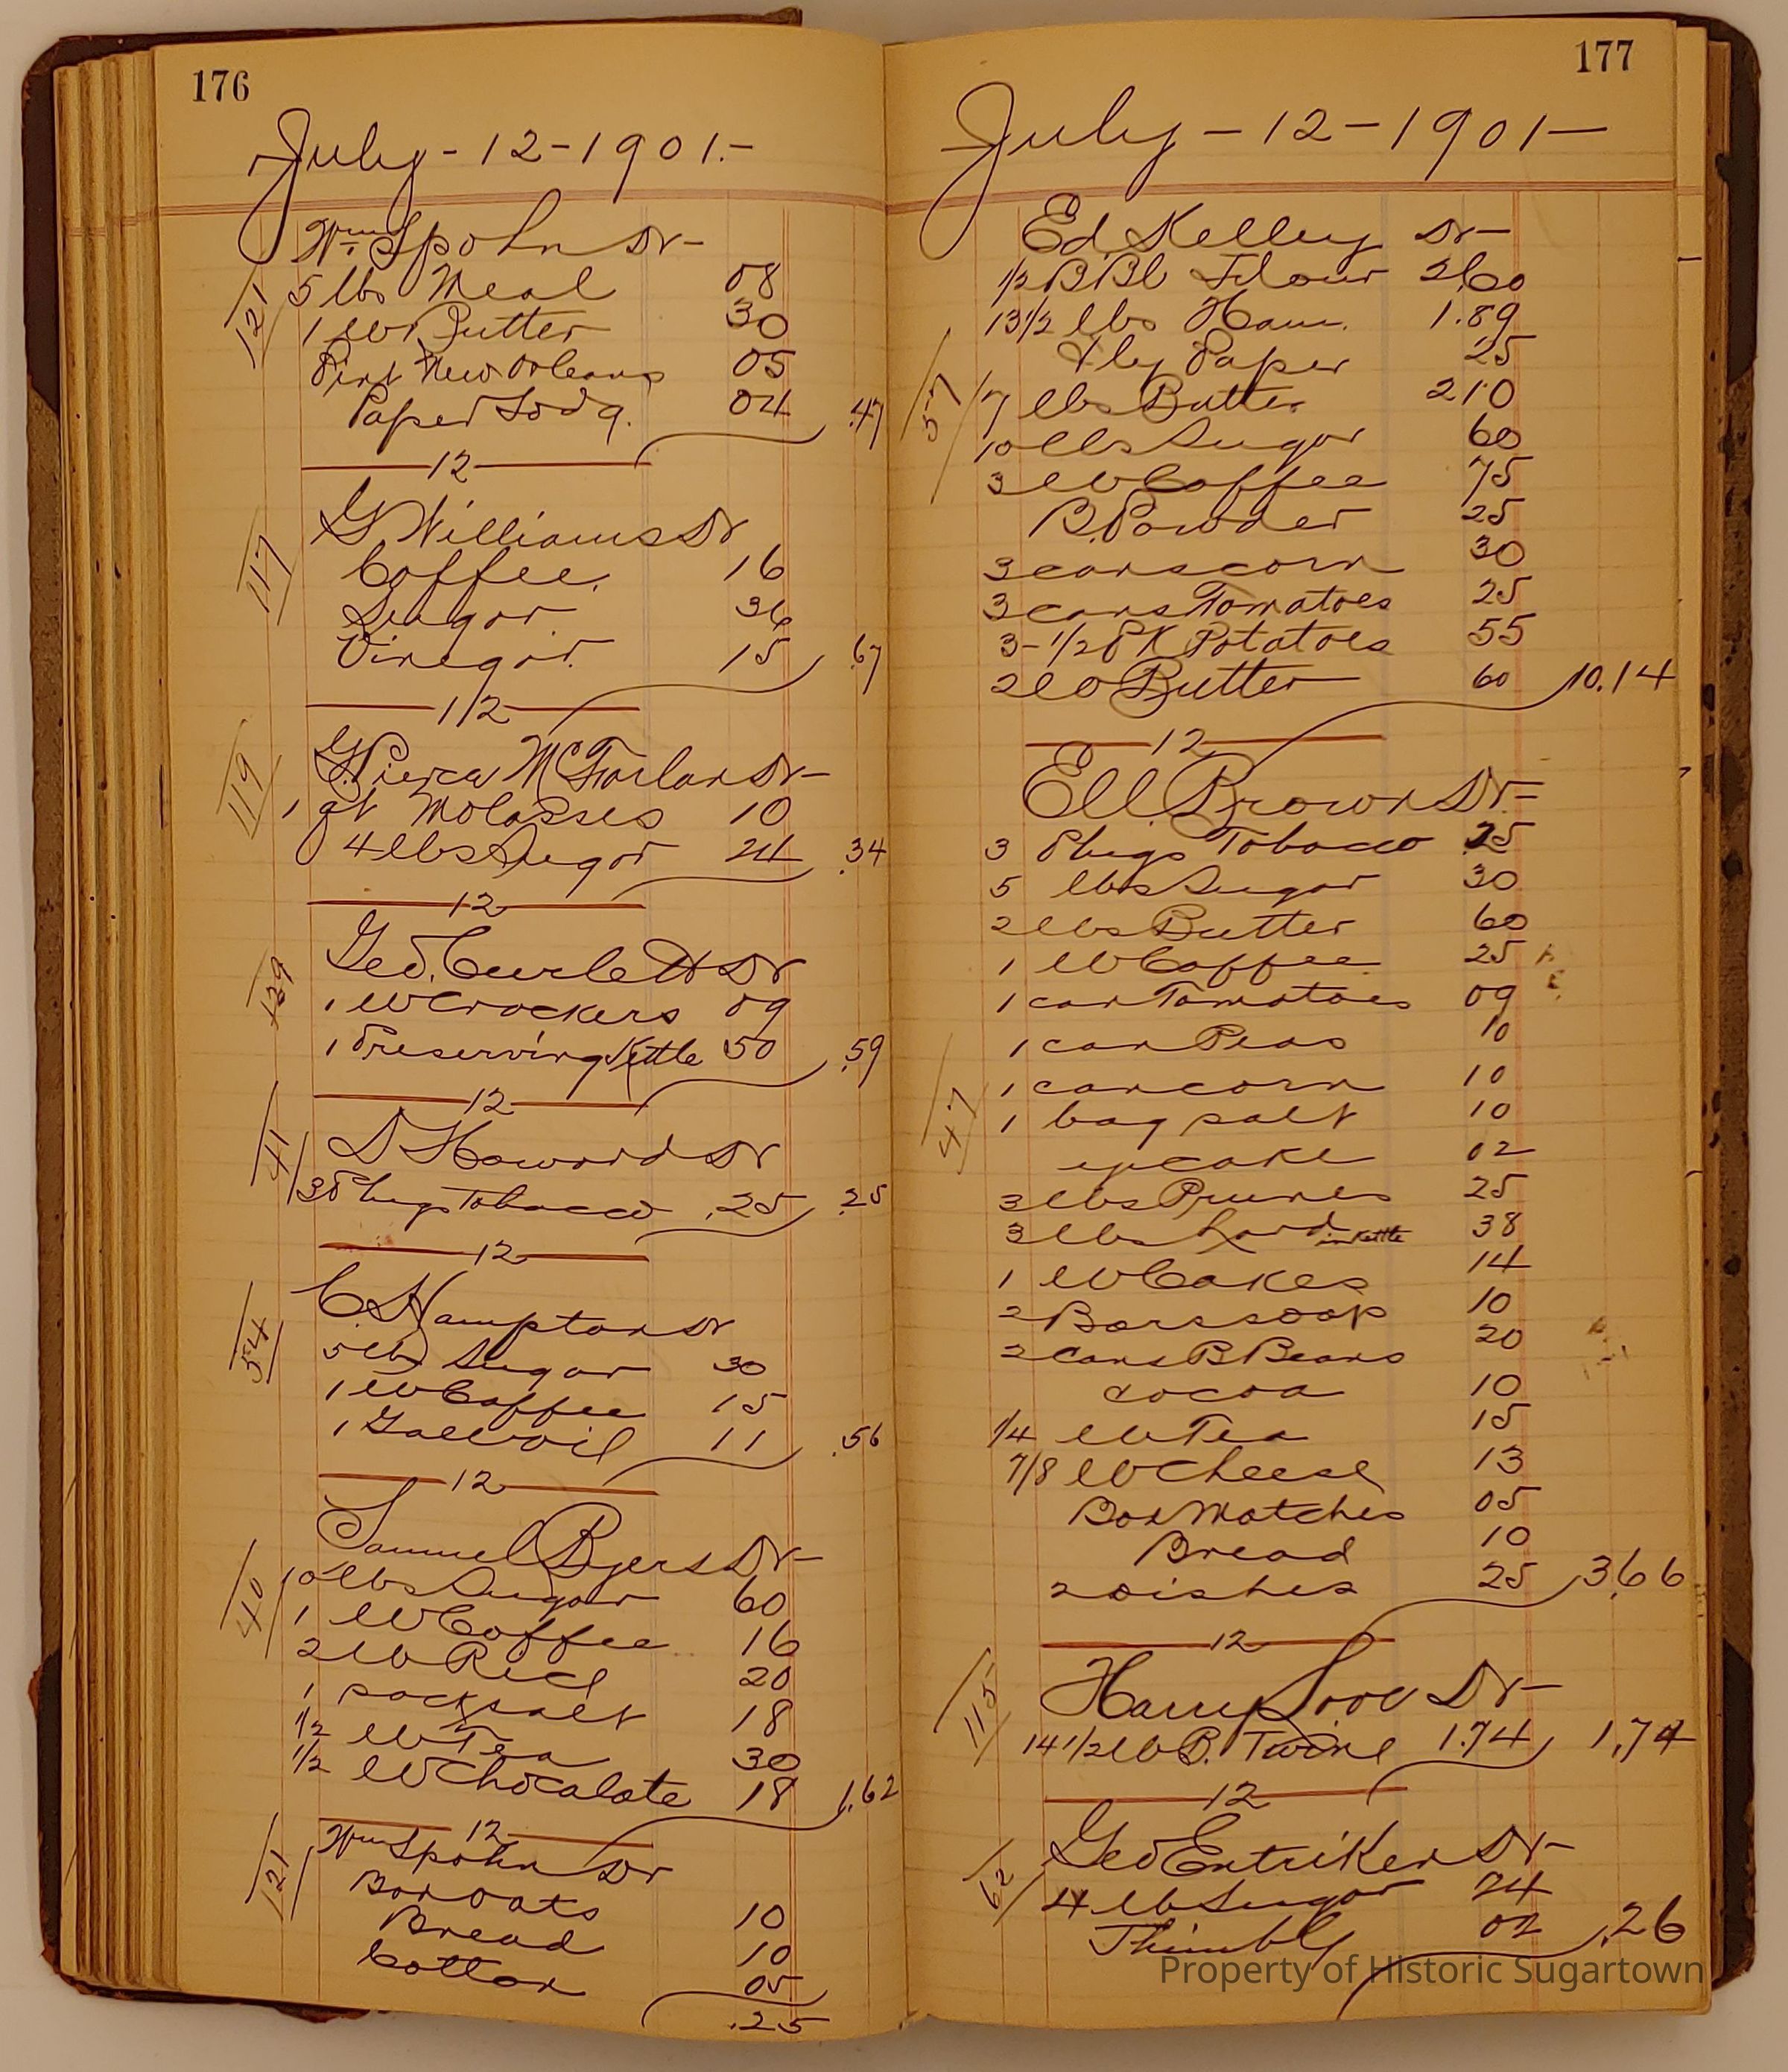 176
July - 12 - 1901.-
Wm. Spohn Dr-
121
5 lbs Meal 08
1 lb Butter 30
Pint New Orleans 05
Paper Soda. 04 .47
12
G Williams Dr
117
Coffee. 16
Sugar. 36
Vinegar. 15 .67
12
G. Pierce McFarlan Dr-
119
1 qt Molasses 10
4 lbs Sugar 24 .34
12
Geo. Curlett Dr
129
1 lb Crackers 09
1 Preserving Kettle 50 .59
12
41
D Howard Dr
3 Plugs Tobacco .25 .25
12
C. Hampton Dr
54
5 lbs Sugar 30
1 lb Coffee 15
1 Gal Coil 11 .56
12
Samuel Byers Dr-
40
10 lbs Sugar 60
1 lb Coffee 16
2 lb Rice 20
1 sack salt 18
1/2 lb Tea 30
1/2 lb Chocalate 18 1.62
12
Wm Spohn Dr
121
Box Oats 10
Bread 10
Cotton 05
.25
177
July - 12 - 1901 -
Ed. Kelley Dr-
1/2 BBl Flour 2.60
13 1/2 lbs Ham. 1.89
Fly Paper 25
57
7 lbs Butter 210
10 lbs Sugar 60
3 lb Coffee 75
B. Powder 25
3 cans corn 30
3 cans Tomatoes 25
3-1/2 PK Potatoes 55
2 lb Butter 60 10.14
12
Ell. Brown Dr-
3 Plugs Tobacco 25
5 lbs Sugar 30
2 lbs Butter 60
1 lb Coffee 25
1 can Tomatoes 09
1 can Peas 10
1 can corn 10
47
1 bag salt 10
02
3 lbs Prunes 25
3 lbs Lard in Kettle 38
1 lb Cakes 14
2 Bars soap 10
2 Cans B Beans 20
cocoa 10
1/4 lb Tea 15
7/8 lb cheese 13
Box Matches 05
Bread 10
2 Dishes 25 3.66
12
115
Harry Dr-
14 1/2 lb B. Twine 1.74 1.74
12
62
Geo Entriken Dr-
4 lb Sugar 24
Thimble 02 .26
Property of Historic Sugartown